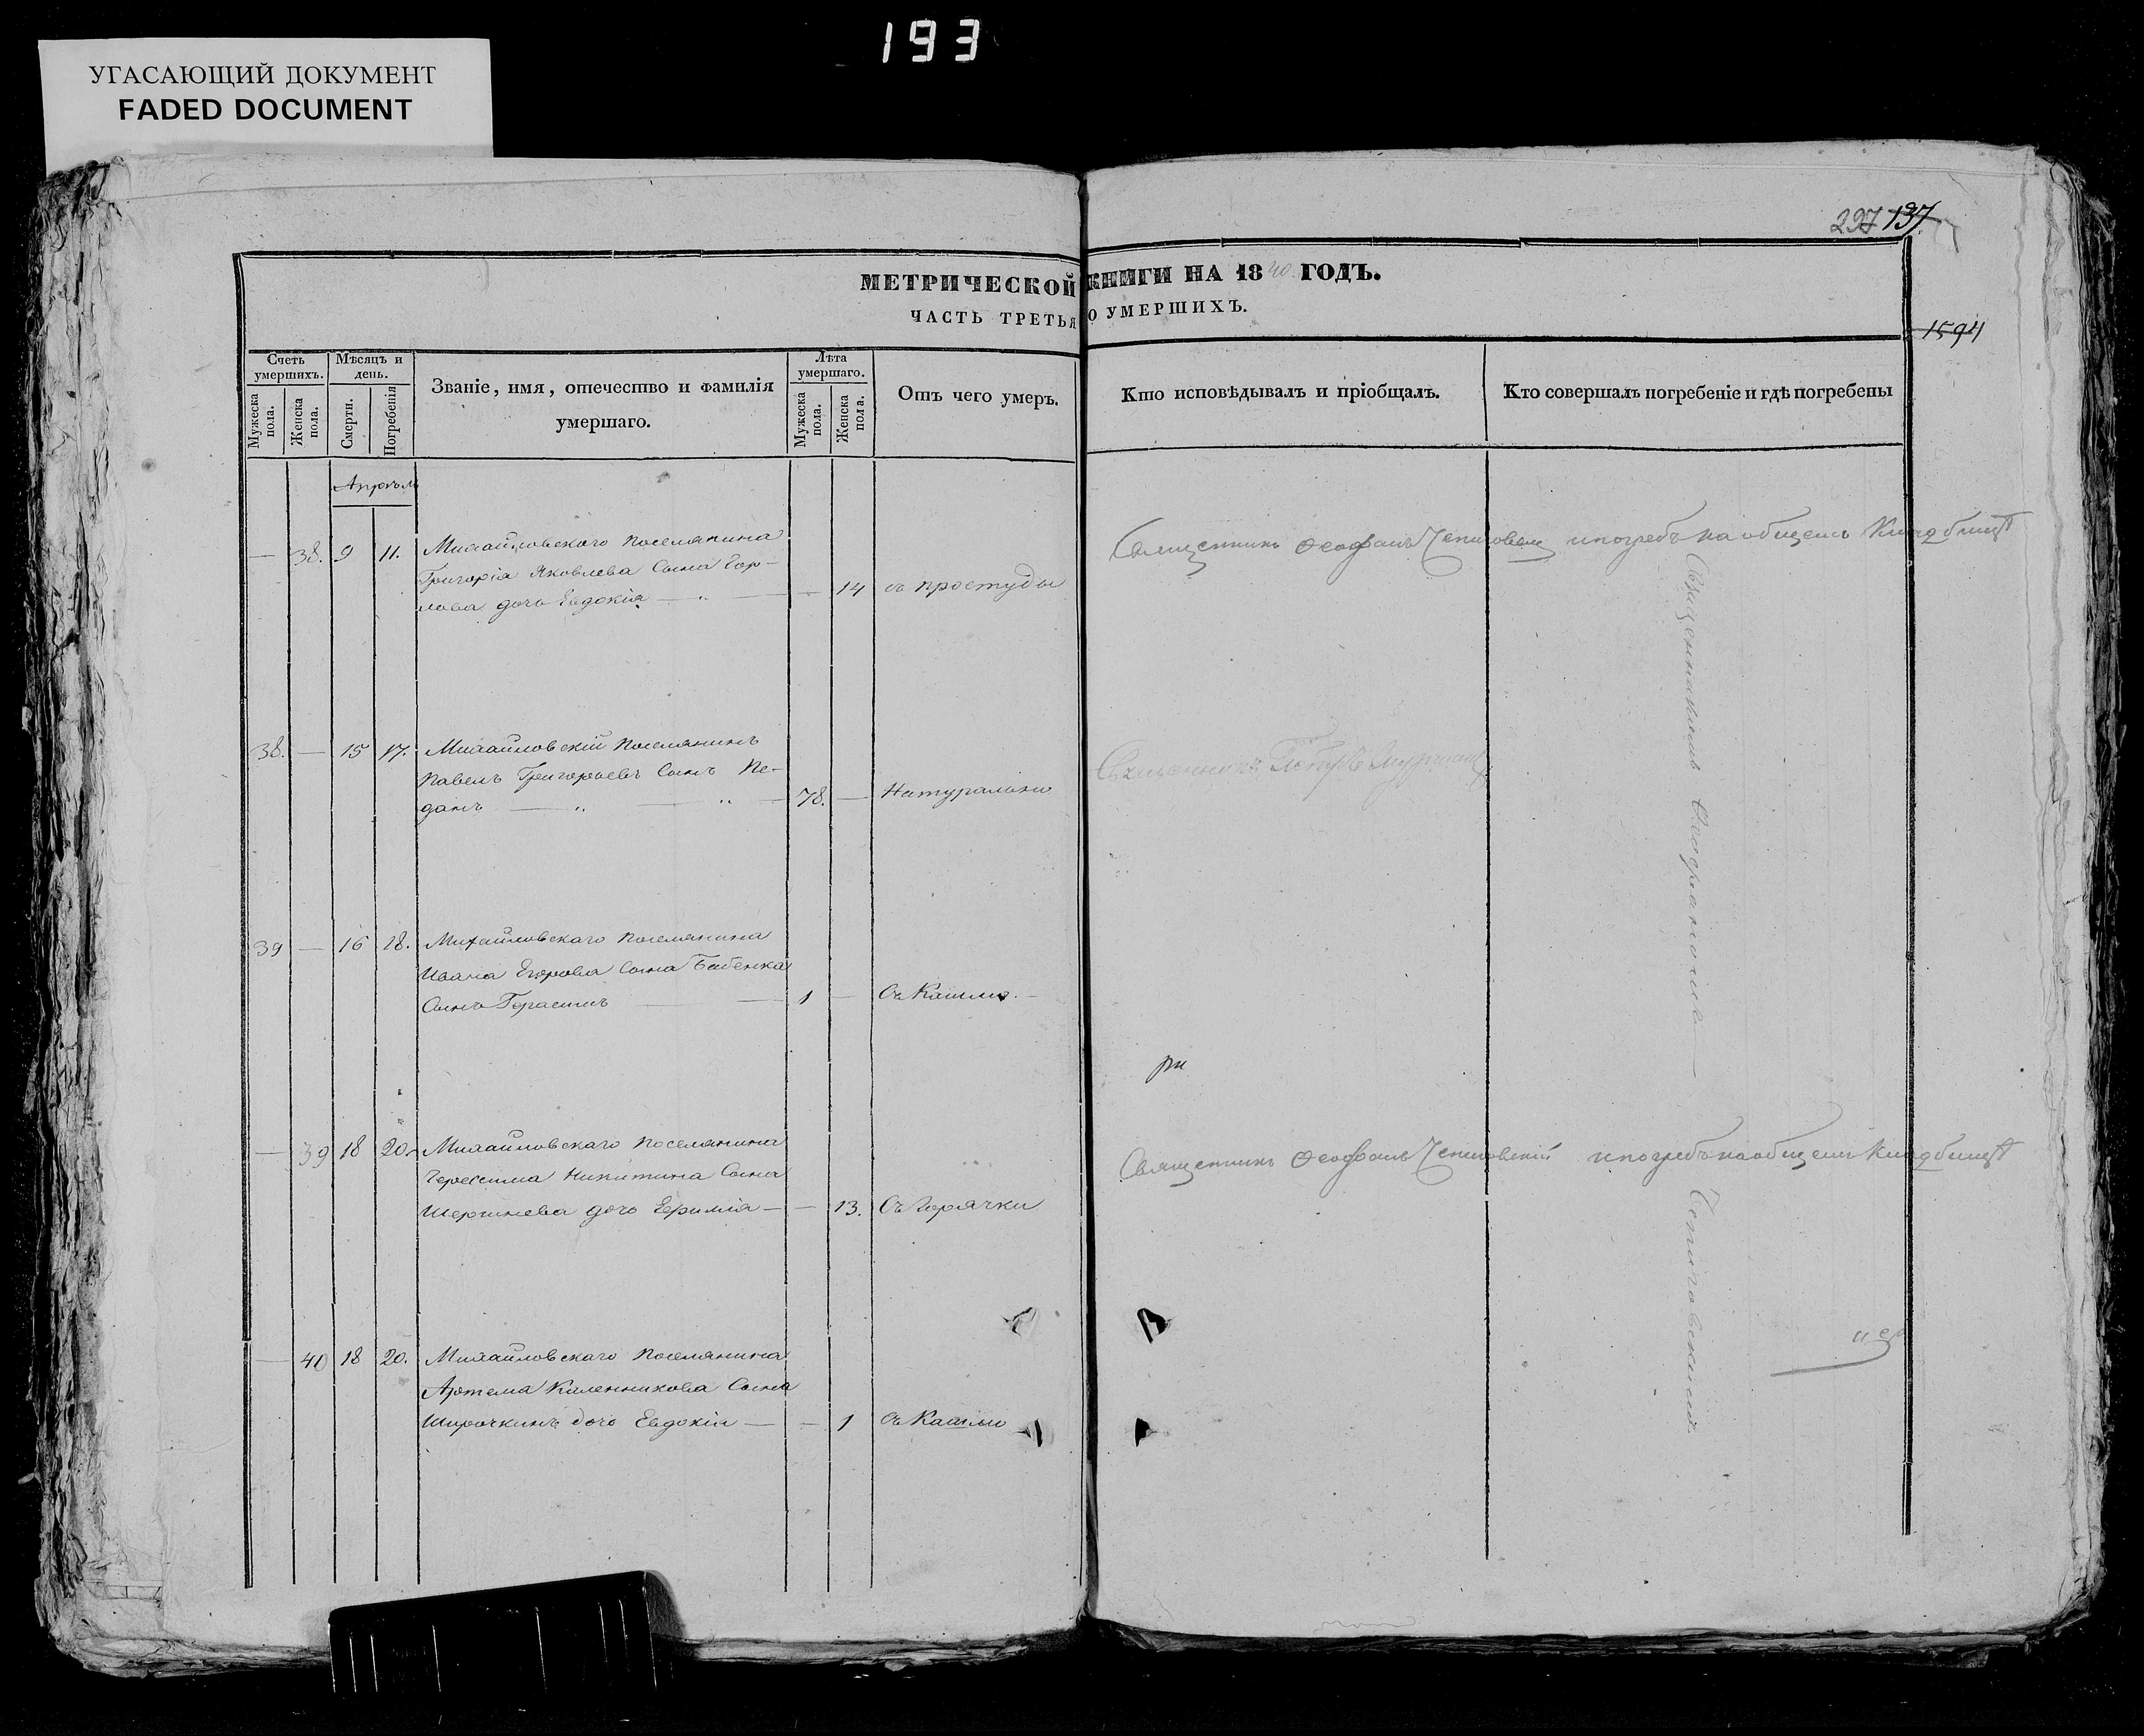 193
УГАСАЮЩИЙ ДОКУМЕНТ
FADED DOCUMENT
297 137
МЕТРИЧЕСКОЙ КНИГИ НА 1840 ГОДЪ.
ЧАСТЬ ТРЕТЬЯ О УМЕРШИХЪ.
1594
Счетъ умершихъ.
Мужеска пола.
Женска пола.
Мѣсяцъ и день.
Смерти.
Погребенія
Званіе, имя, отечество и фамилія умершаго.
Лѣта умершаго.
Мужеска пола.
Женска пола.
Отъ чего умеръ.
Кто исповѣдывалъ и пріобщалъ.
Кто совершалъ погребеніе и гдѣ погребены
Апрѣль
— 38. 9 11. Михайловского поселянина
Григорія Яковлева Сына Гор-
лова дочь Евдокія — 14 съ простуды
Священникъ Феофанъ и погребъ на общемъ Кладбищѣ
38. — 15 17. Михайловскій Поселянинъ
Павелъ Григорьевъ Сынъ Пе-
данъ — 78. — Натурально
Священникъ Петръ
39 — 16 18. Михайловскаго поселянина
Ивана Егорова Сына Бабенка
Сынъ Герасимъ — 1 — Съ Кашлю.
— 39 18 20. Михайловскаго поселянина
Никитина Сына
дочь — 13. Съ Горячки
Священникъ Феофанъ Чепиговскій и погребъ на общемъ Кладбищѣ
— 40 18 20. Михайловскаго Поселянина
Артема Каленникова Сына
Широчкинъ дочь Евдокія — — 1 Съ Кашлю
Священникомъ Феофаномъ
Чепиговскимъ